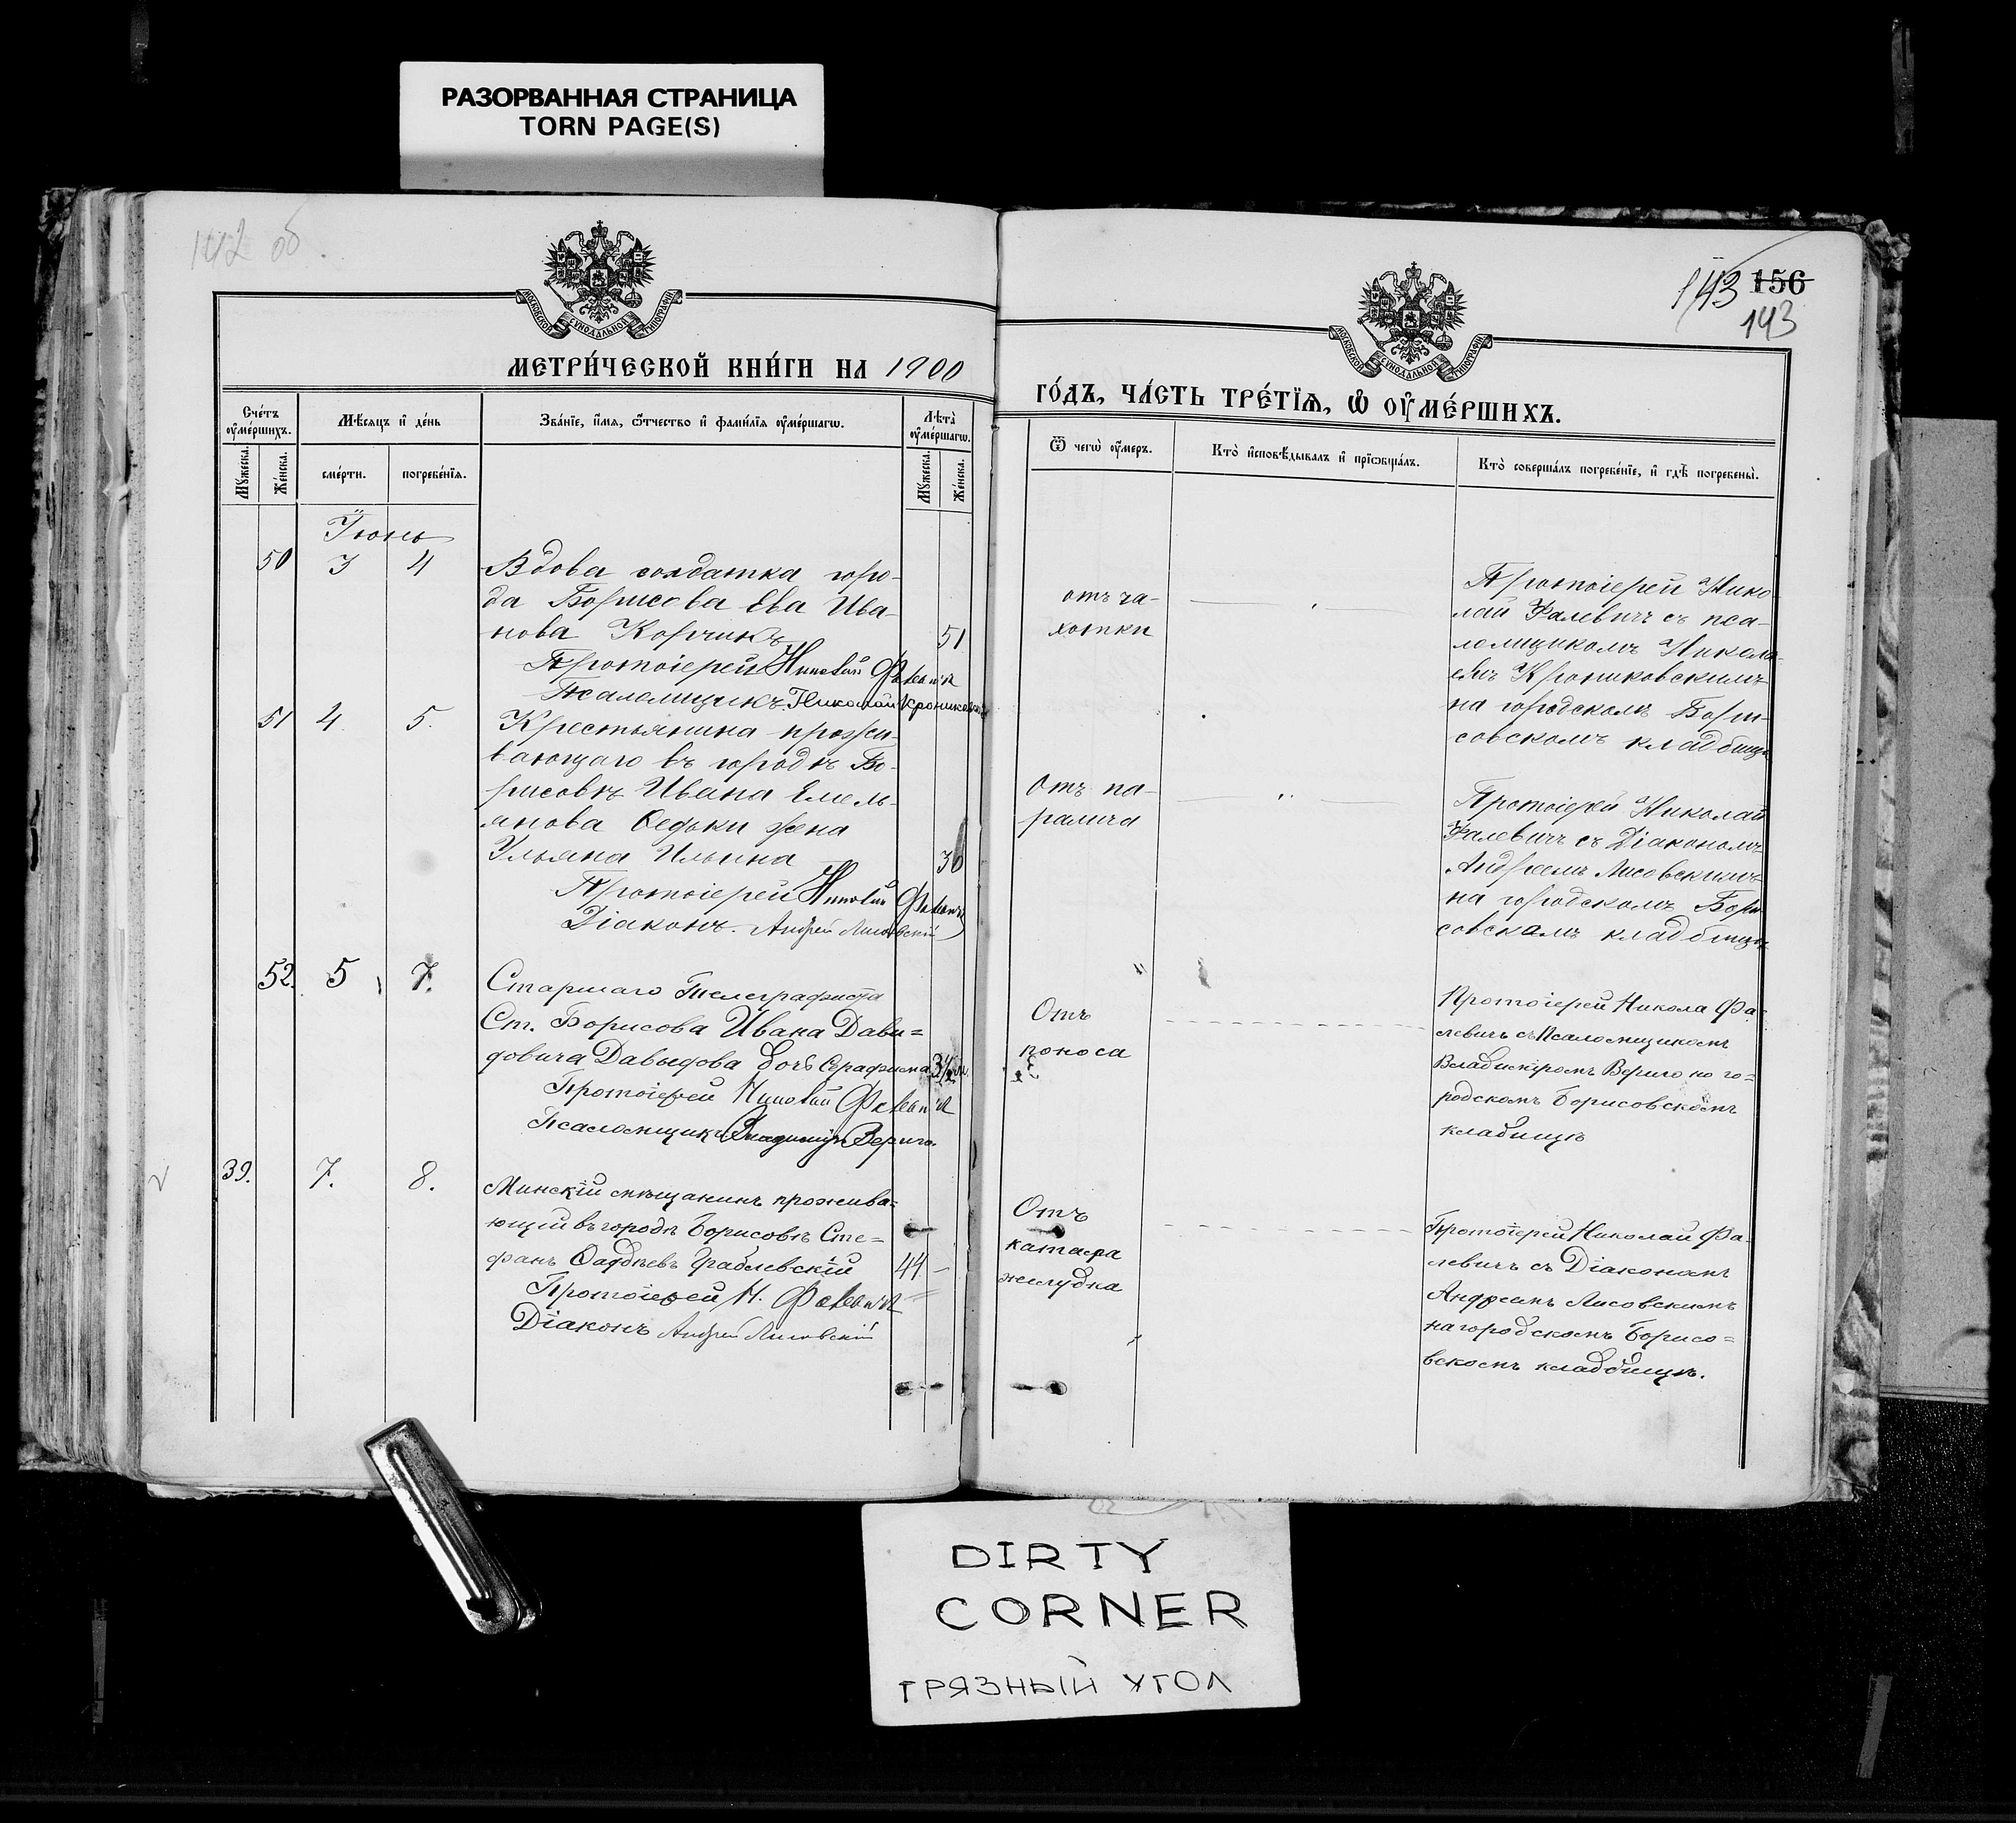 РАЗОРВАННАЯ СТРАНИЦА
TORN PAGE(S)
142 об.
МОСКОВСКОЙ СУНОДАЛЬНОЙ ТИПОГРАФІИ
МЕТРИ́ЧЕСКОЙ КНИ́ГИ НА 1900
Сче́тъ ᲂу҆ме́ршихъ.
Мѣ́сѧцъ и҆ де́нь
Зва́нїе, и҆́мѧ, ѻ҆́тчество и҆ фами́лїѧ ᲂу҆ме́ршагѡ.
Лѣ́та ᲂу҆ме́ршагѡ.
Мꙋ́жеска.
Же́нска.
сме́рти.
погребе́нїѧ.
Мꙋ́жеска.
Же́нска.
Іюнь
50 3 4
Вдова солдатка горо-
да Борисова Ева Ива-
нова Корчикъ 51
Протоіерей Николай Фалевичъ
Псаломщикъ Николай Крониковскій
51 4 5.
Крестьянина прожи-
вающаго въ городѣ Бо-
рисовѣ Ивана Емель-
янова Федьки жена
Ульяна Ильина 30
Протоіерей Николай Фалевичъ
Діаконъ. Андрей Лисовскій
52. 5 7.
Старшаго Телеграфиста
Ст. Борисова Ивана Дави=
довича Давыдова дочь Серафима 3½ м.
Протоіерей Николай Фалевичъ
Псаломщикъ Владиміръ Вериго.
39. 7. 8.
Минскій мѣщанинъ прожива=
ющій въ городѣ Борисовѣ Сте=
фанъ Фаддѣевъ Граблевскій 44 –
Протоіерей Н. Фалевичъ
Діаконъ Андрей Лисовскій
143 156
143
МОСКОВСКОЙ СУНОДАЛЬНОЙ ТИПОГРАФІИ
ГО́ДЪ, ЧА́СТЬ ТРЕ́ТЇѦ, Ѽ ОУ҆МЕ́РШИХЪ.
Ѿ чегѡ̀ ᲂу҆́меръ.
Кто̀ и҆сповѣ́дывалъ и҆ прїѡбща́лъ.
Кто̀ соверша́лъ погребе́нїе, и҆ гдѣ̀ погребены̀.
отъ ча-
хотки
Протоіерей Нико
лай Фалевичъ съ пса-
ломщикомъ Никола-
емъ Крониковскимъ
на городскомъ Бори-
совскомъ кладбищѣ
Отъ па-
ралича
Протоіерей Николай
Фалевичъ съ Діакономъ
Андреемъ Лисовскимъ
на городскомъ Бори-
совскомъ кладбищѣ
Отъ
поноса
Протоіерей Никола Фа-
левичъ съ Псаломщикомъ
Владиміромъ Вериго на го=
родскомъ Борисовскомъ
кладбищѣ
Отъ
катара
желудка
Протоіерей Николай Фа-
левичъ съ Діакономъ
Андреемъ Лисовскимъ
на городскомъ Борисо=
вскомъ кладбищѣ.
DIRTY
CORNER
ГРЯЗНЫЙ УГОЛ